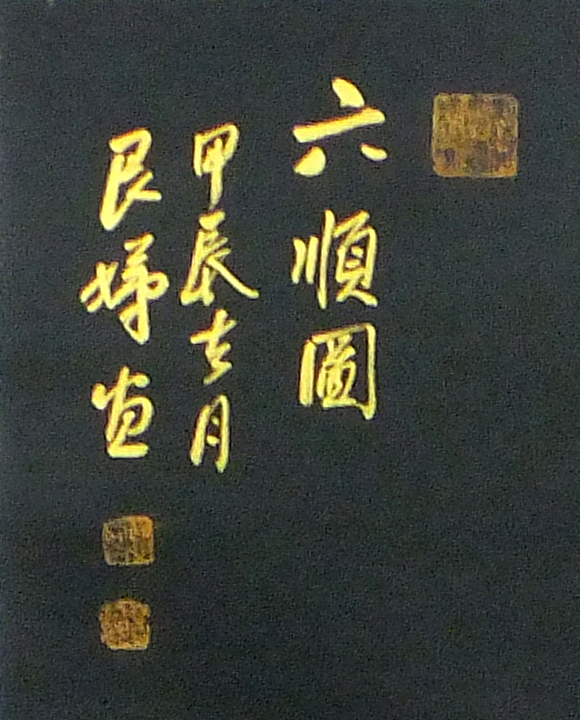 六順圖
甲辰吉月
艮娣画